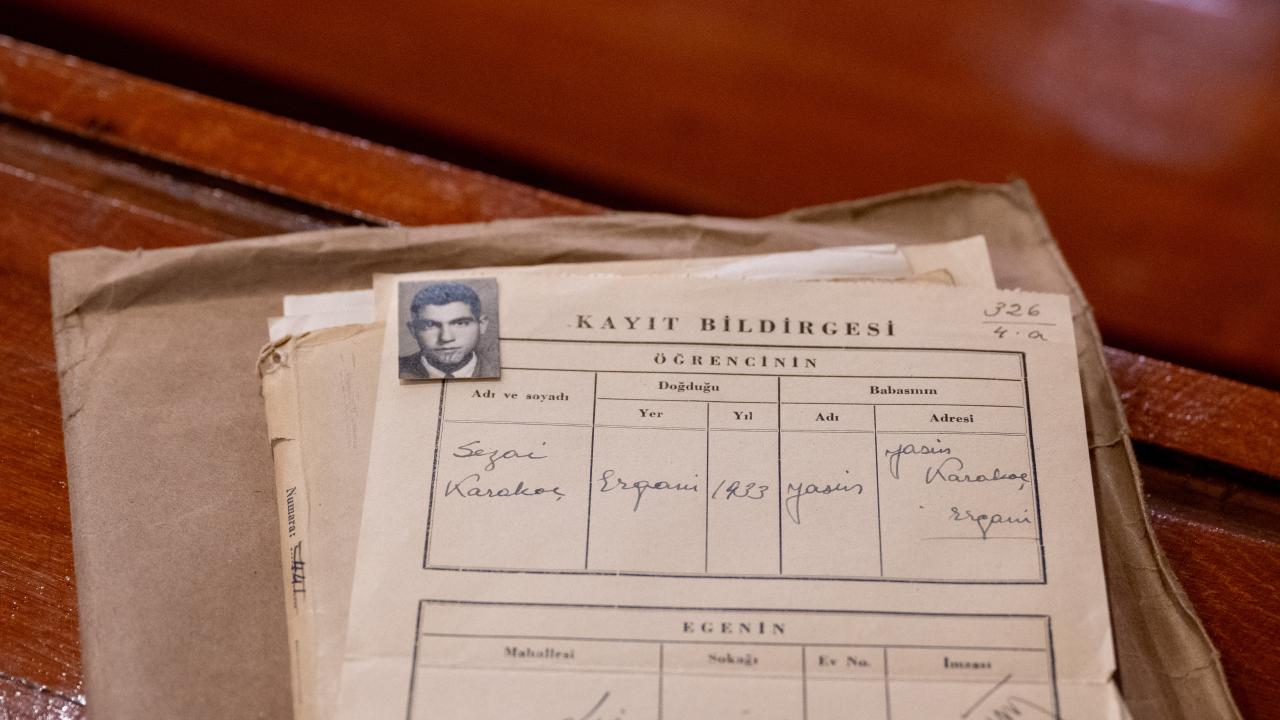 KAYIT BİLDİRGESİ
326
4.a
ÖĞRENCİNİN
Adı ve soyadı
Doğduğu
Babasının
Yer
Yıl
Adı
Adresi
Sezai
Karakoç
Ergani
1933
Yasin
Yasin
Karakoç
Ergani
Numara: 441
EGENİN
Mahallesi
Sokağı
Ev No.
İmzası